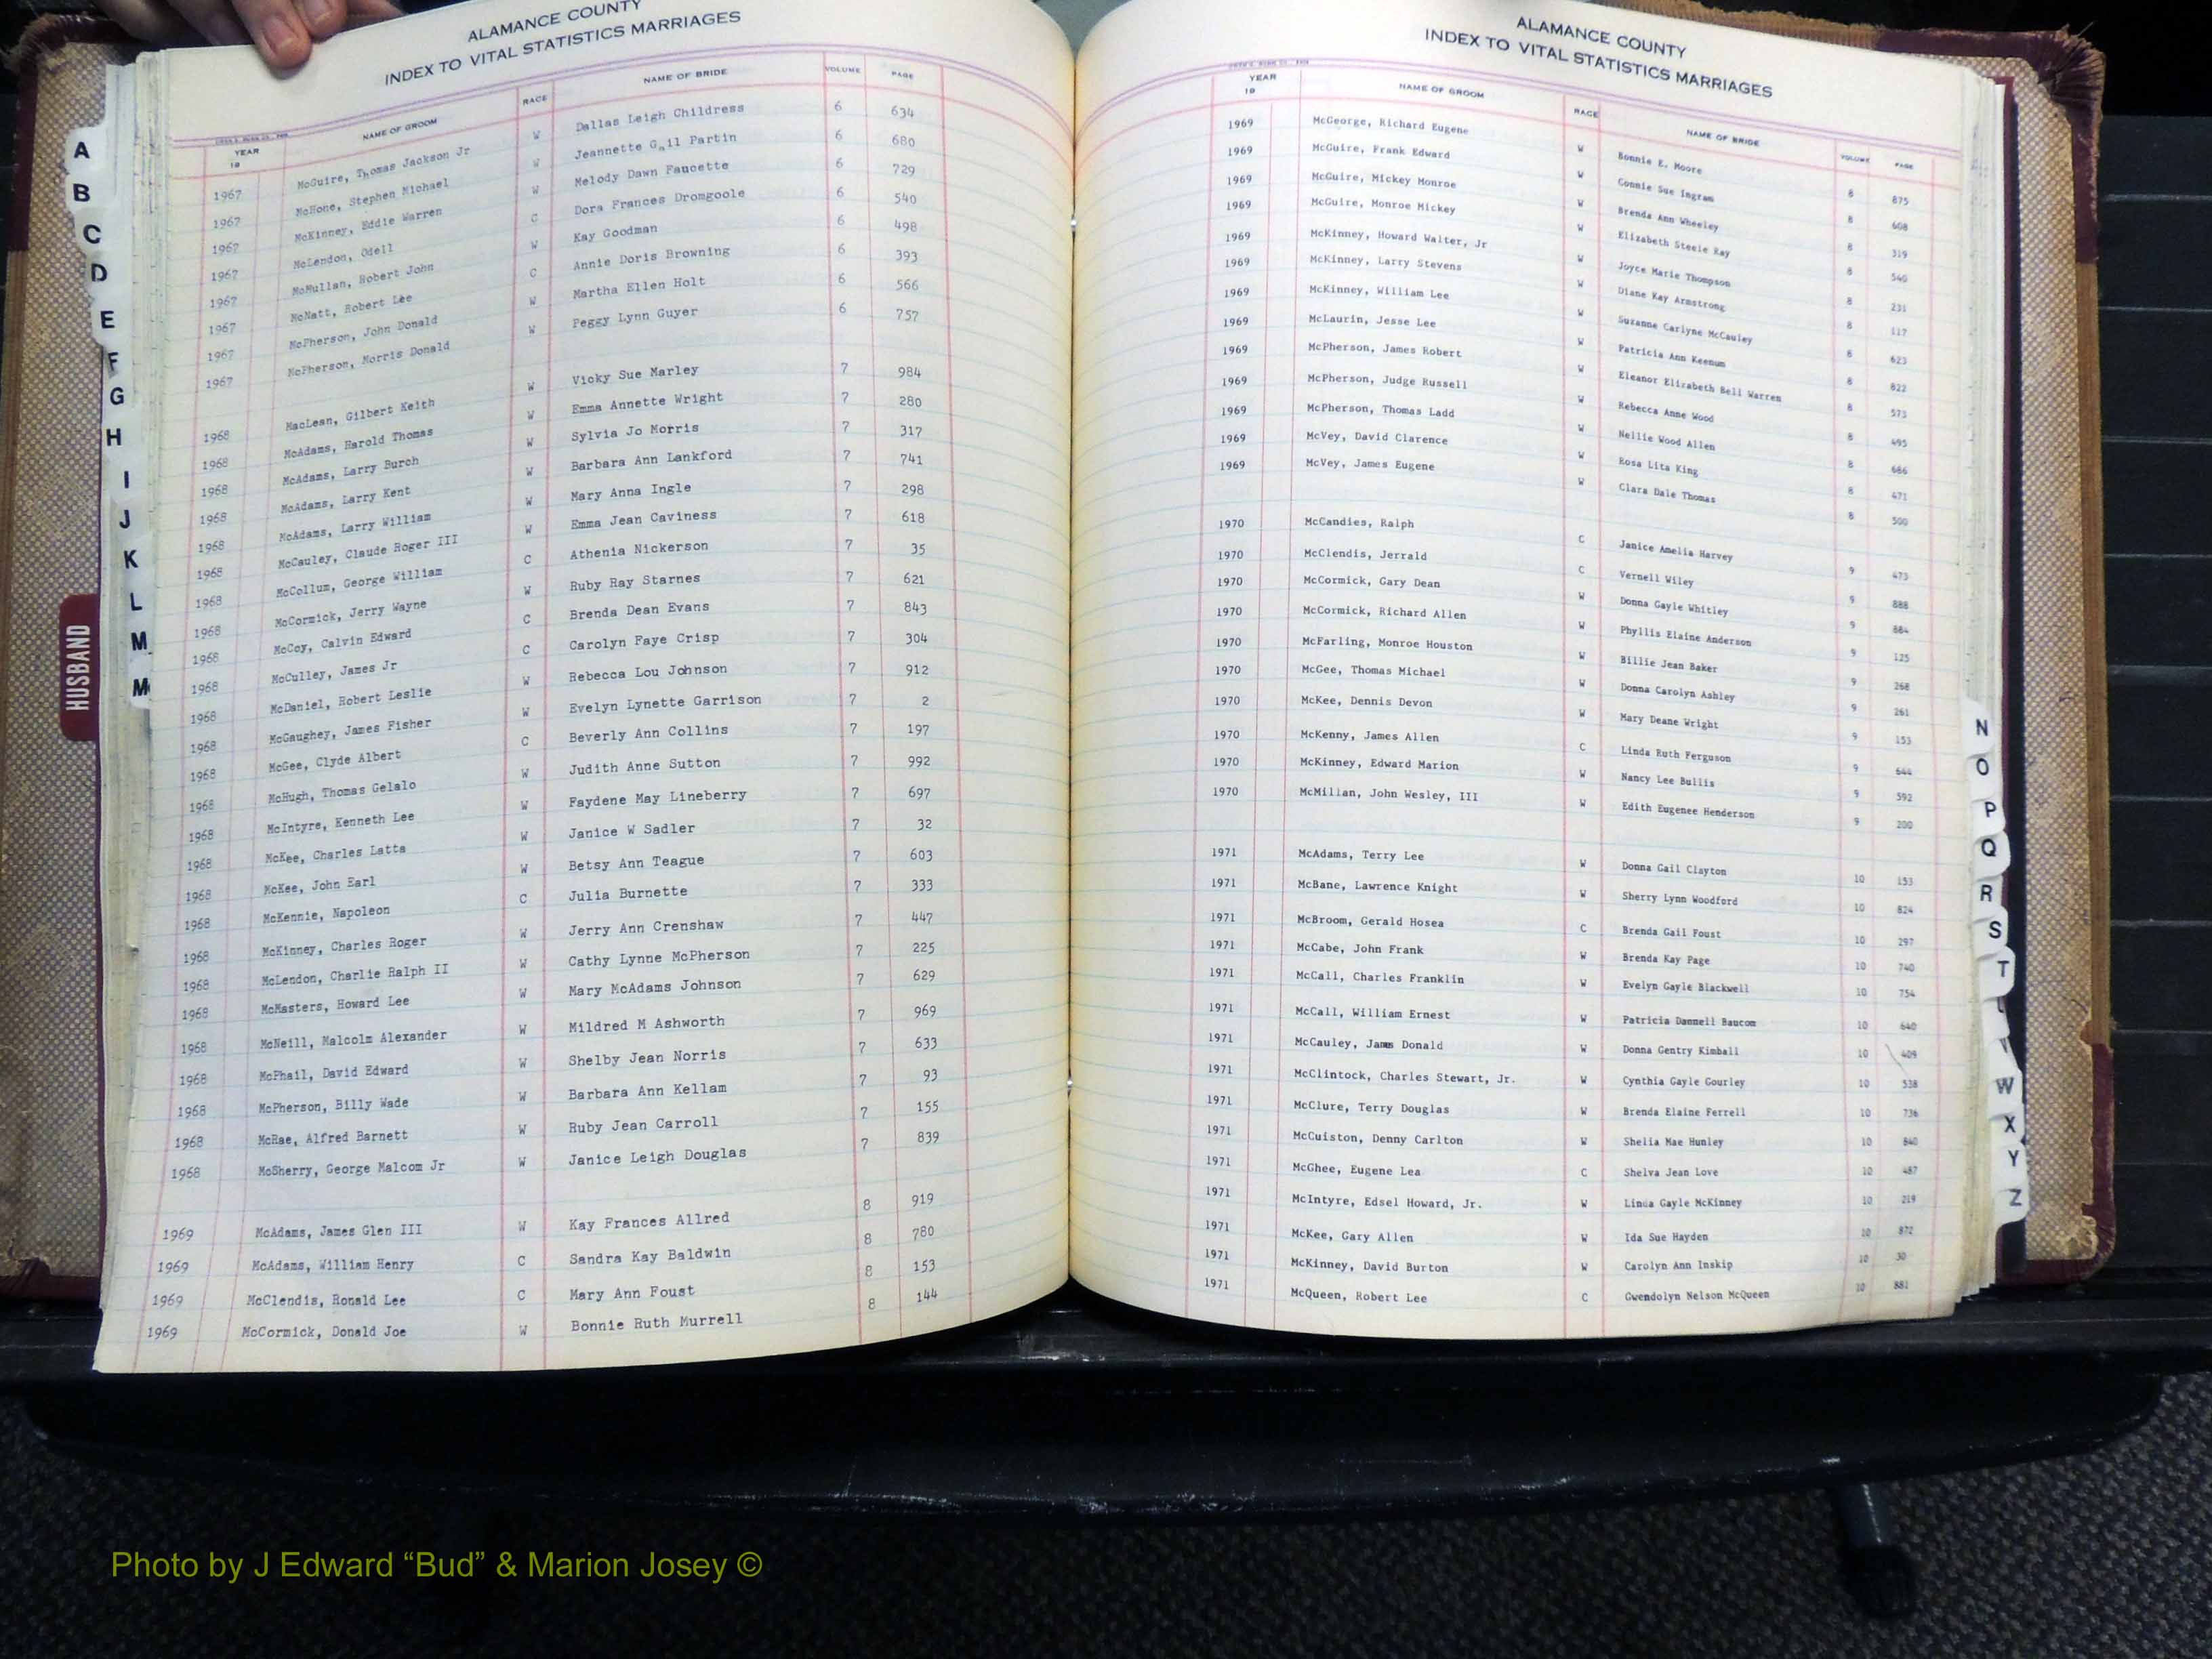 ALAMANCE COUNTY
INDEX TO VITAL STATISTICS MARRIAGES
YEAR 19 NAME OF GROOM RACE NAME OF BRIDE VOLUME PAGE
1967 McGuire, Thomas Jackson Jr W Dallas Leigh Childress 6 634
1967 McHone, Stephen Michael W Jeannette Gail Partin 6 680
1967 McKinney, Eddie Warren W Melody Dawn Faucette 6 729
1967 McLendon, Odell C Dora Frances Dromgoole 6 540
1967 McMullan, Robert John W Kay Goodman 6 498
1967 McNatt, Robert Lee C Annie Doris Browning 6 393
1967 McPherson, John Donald W Martha Ellen Holt 6 566
1967 McPherson, Morris Donald W Peggy Lynn Guyer 6 757
1968 MacLean, Gilbert Keith W Vicky Sue Marley 7 984
1968 McAdams, Harold Thomas W Emma Annette Wright 7 280
1968 McAdams, Larry Burch W Sylvia Jo Morris 7 317
1968 McAdams, Larry Kent W Barbara Ann Lankford 7 741
1968 McAdams, Larry William W Mary Anna Ingle 7 298
1968 McCauley, Claude Roger III W Emma Jean Caviness 7 618
1968 McCollum, George William C Athenia Nickerson 7 35
1968 McCormick, Jerry Wayne W Ruby Ray Starnes 7 621
1968 McCoy, Calvin Edward C Brenda Dean Evans 7 843
1968 McCulley, James Jr C Carolyn Faye Crisp 7 304
1968 McDaniel, Robert Leslie W Rebecca Lou Johnson 7 912
1968 McGaughey, James Fisher W Evelyn Lynette Garrison 7 2
1968 McGee, Clyde Albert C Beverly Ann Collins 7 197
1968 McHugh, Thomas Gelalo W Judith Anne Sutton 7 992
1968 McIntyre, Kenneth Lee W Faydene May Lineberry 7 697
1968 McKee, Charles Latta W Janice W Sadler 7 32
1968 McKee, John Earl W Betsy Ann Teague 7 603
1968 McKennie, Napoleon C Julia Burnette 7 333
1968 McKinney, Charles Roger W Jerry Ann Crenshaw 7 447
1968 McLendon, Charlie Ralph II W Cathy Lynne McPherson 7 225
1968 McMasters, Howard Lee W Mary McAdams Johnson 7 629
1968 McNeill, Malcolm Alexander W Mildred M Ashworth 7 969
1968 McPhail, David Edward W Shelby Jean Norris 7 633
1968 McPherson, Billy Wade W Barbara Ann Kellam 7 93
1968 McRae, Alfred Barnett W Ruby Jean Carroll 7 155
1968 McSherry, George Malcom Jr W Janice Leigh Douglas 7 839
1969 McAdams, James Glen III W Kay Frances Allred 8 919
1969 McAdams, William Henry C Sandra Kay Baldwin 8 780
1969 McClendis, Ronald Lee C Mary Ann Foust 8 153
1969 McCormick, Donald Joe W Bonnie Ruth Murrell 8 144
A
B
C
D
E
F
G
H
I
J
K
L
M
M
HUSBAND
ALAMANCE COUNTY
INDEX TO VITAL STATISTICS MARRIAGES
YEAR 19 NAME OF GROOM RACE NAME OF BRIDE VOLUME PAGE
1969 McGeorge, Richard Eugene W Bonnie E. Moore 8 875
1969 McGuire, Frank Edward W Connie Sue Ingram 8 608
1969 McGuire, Mickey Monroe W Brenda Ann Wheeley 8 319
1969 McGuire, Monroe Mickey W Elizabeth Steele Ray 8 540
1969 McKinney, Howard Walter, Jr W Joyce Marie Thompson 8 231
1969 McKinney, Larry Stevens W Diane Kay Armstrong 8 117
1969 McKinney, William Lee W Suzanne Carlyne McCauley 8 623
1969 McLaurin, Jesse Lee W Patricia Ann Keenum 8 822
1969 McPherson, James Robert W Eleanor Elizabeth Bell Warren 8 573
1969 McPherson, Judge Russell W Rebecca Anne Wood 8 495
1969 McPherson, Thomas Ladd W Nellie Wood Allen 8 686
1969 McVey, David Clarence W Rosa Lita King 8 471
1969 McVey, James Eugene W Clara Dale Thomas 8 500
1970 McCandies, Ralph C Janice Amelia Harvey 9 473
1970 McClendis, Jerrald C Vernell Wiley 9 888
1970 McCormick, Gary Dean W Donna Gayle Whitley 9 884
1970 McCormick, Richard Allen W Phyllis Elaine Anderson 9 125
1970 McFarling, Monroe Houston W Billie Jean Baker 9 268
1970 McGee, Thomas Michael W Donna Carolyn Ashley 9 261
1970 McKee, Dennis Devon W Mary Deane Wright 9 153
1970 McKenny, James Allen C Linda Ruth Ferguson 9 644
1970 McKinney, Edward Marion W Nancy Lee Bullis 9 592
1970 McMillan, John Wesley, III W Edith Eugenee Henderson 9 200
1971 McAdams, Terry Lee W Donna Gail Clayton 10 153
1971 McBane, Lawrence Knight W Sherry Lynn Woodford 10 824
1971 McBroom, Gerald Hosea C Brenda Gail Foust 10 297
1971 McCabe, John Frank W Brenda Kay Page 10 740
1971 McCall, Charles Franklin W Evelyn Gayle Blackwell 10 754
1971 McCall, William Ernest W Patricia Dannell Baucom 10 640
1971 McCauley, James Donald W Donna Gentry Kimball 10 409
1971 McClintock, Charles Stewart, Jr. W Cynthia Gayle Gourley 10 538
1971 McClure, Terry Douglas W Brenda Elaine Ferrell 10 736
1971 McCuiston, Denny Carlton W Shelia Mae Hunley 10 840
1971 McGhee, Eugene Lea C Shelva Jean Love 10 487
1971 McIntyre, Edsel Howard, Jr. W Linda Gayle McKinney 10 219
1971 McKee, Gary Allen W Ida Sue Hayden 10 872
1971 McKinney, David Burton W Carolyn Ann Inskip 10 30
1971 McQueen, Robert Lee C Gwendolyn Nelson McQueen 10 881
N
O
P
Q
R
S
T
W
X
Y
Z
Photo by J Edward “Bud” & Marion Josey ©